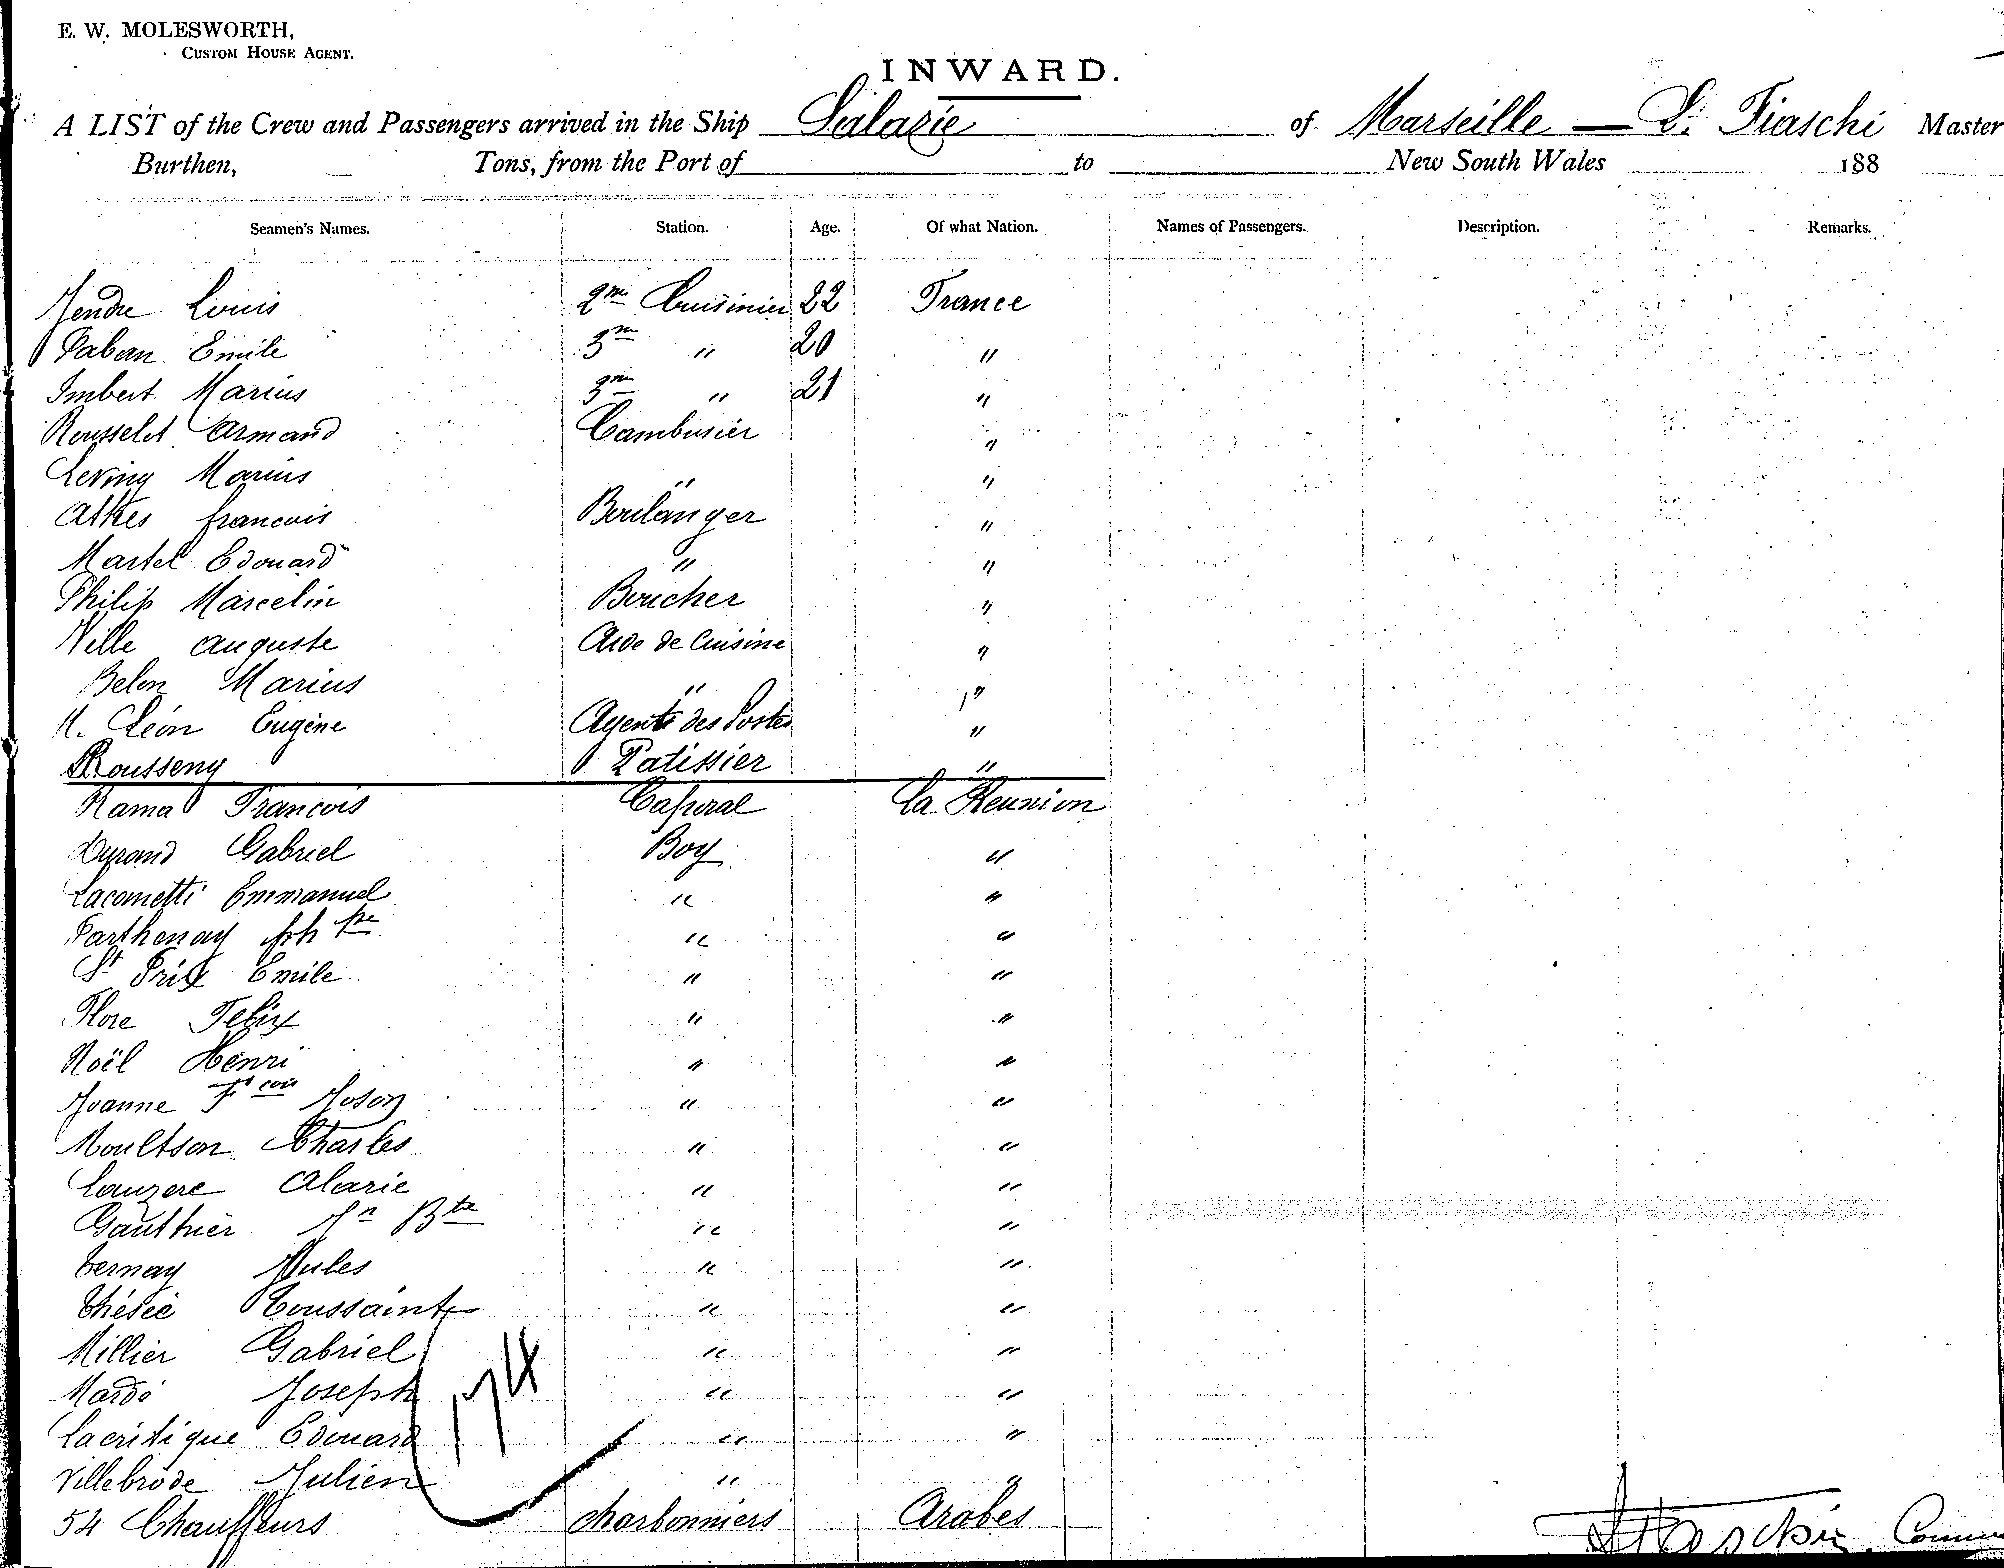 E. W. MOLESWORTH,
CUSTOM HOUSE AGENT.
INWARD.
A LIST of the Crew and Passengers arrived in the Ship Salazie of Marseille — L. Fiaschi Master
Burthen, Tons, from the Port of to New South Wales 188
Seamen's Names. Station. Age. Of what Nation. Names of Passengers. Description. Remarks.
Louis 2me Cuisinier 22 France
Paban Emile 3m " 20 "
Imbert Marius 3me " 21 "
Rousselot Armand Cambusier "
Marius " "
francois Boulanger "
Martel Edouard " "
Philip Marcelin Boucher "
Ville auguste Aide de Cuisine "
Belon Marius " "
Léon Eugène Agent des Postes "
Rousseny Patissier "
Rama Francois Caporal La Reunion
Durand Gabriel Boy "
Lacometti Emmanuel " "
Parthenay " "
St Prix Emile " "
Flore Felix " "
Noël Henri " "
Joanne " "
Moultson Charles " "
Lauzere Alarie " "
Gauthier Jn Bte " "
Vernay Jules " "
Thésée Toussaint " "
Millier Gabriel " "
Mardé Joseph " "
174
Lacritique Edouard " "
Villebrode Julien " "
54 Chauffeurs charbonniers Arabes
Fiaschi